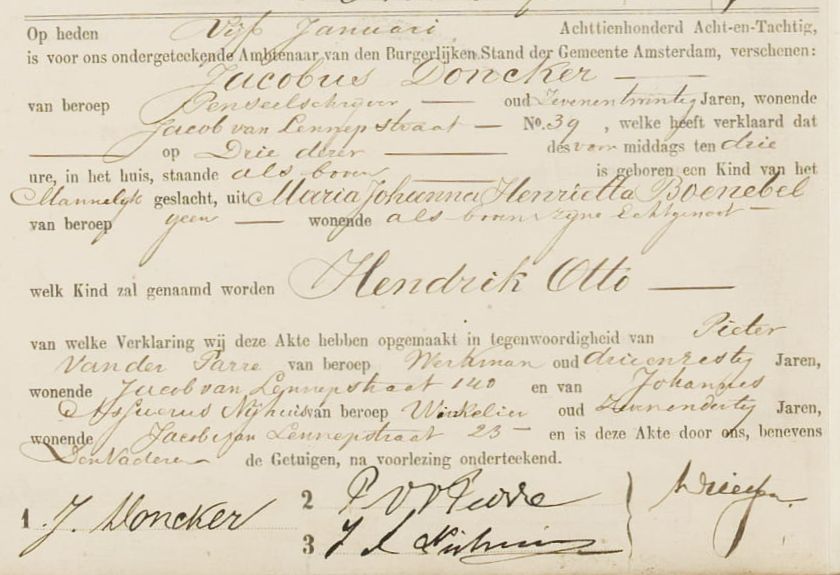 Op heden Vijf Januari Achttienhonderd Acht-en-Tachtig,
is voor ons ondergeteekende Ambtenaar van den Burgerlijken Stand der Gemeente Amsterdam, verschenen:
Jacobus Doncker —
van beroep Penseelschryver — oud Zevenentwintig Jaren, wonende
Jacob van Lennepstraat — No. 39, welke heeft verklaard dat
— op Drie dezer — des voor middags ten drie
ure, in het huis, staande als boven — is geboren een Kind van het
Mannelyk geslacht, uit Maria Johanna Henrietta Boenebel
van beroep geen — wonende als boven zyne Echtgenoot —
welk Kind zal genaamd worden Hendrik Otto —
van welke Verklaring wij deze Akte hebben opgemaakt in tegenwoordigheid van Pieter
van der Parre van beroep Werkman oud drieenzestig Jaren,
wonende Jacob van Lennepstraat 140 en van Johannes
Assuerus Nyhuis van beroep Winkelier oud Jaren,
wonende Jacob van Lennepstraat 23 — en is deze Akte door ons, benevens
Den Vader en de Getuigen, na voorlezing onderteekend.
1 J. Doncker
2 P v d Parre
3 J A Nijhuis